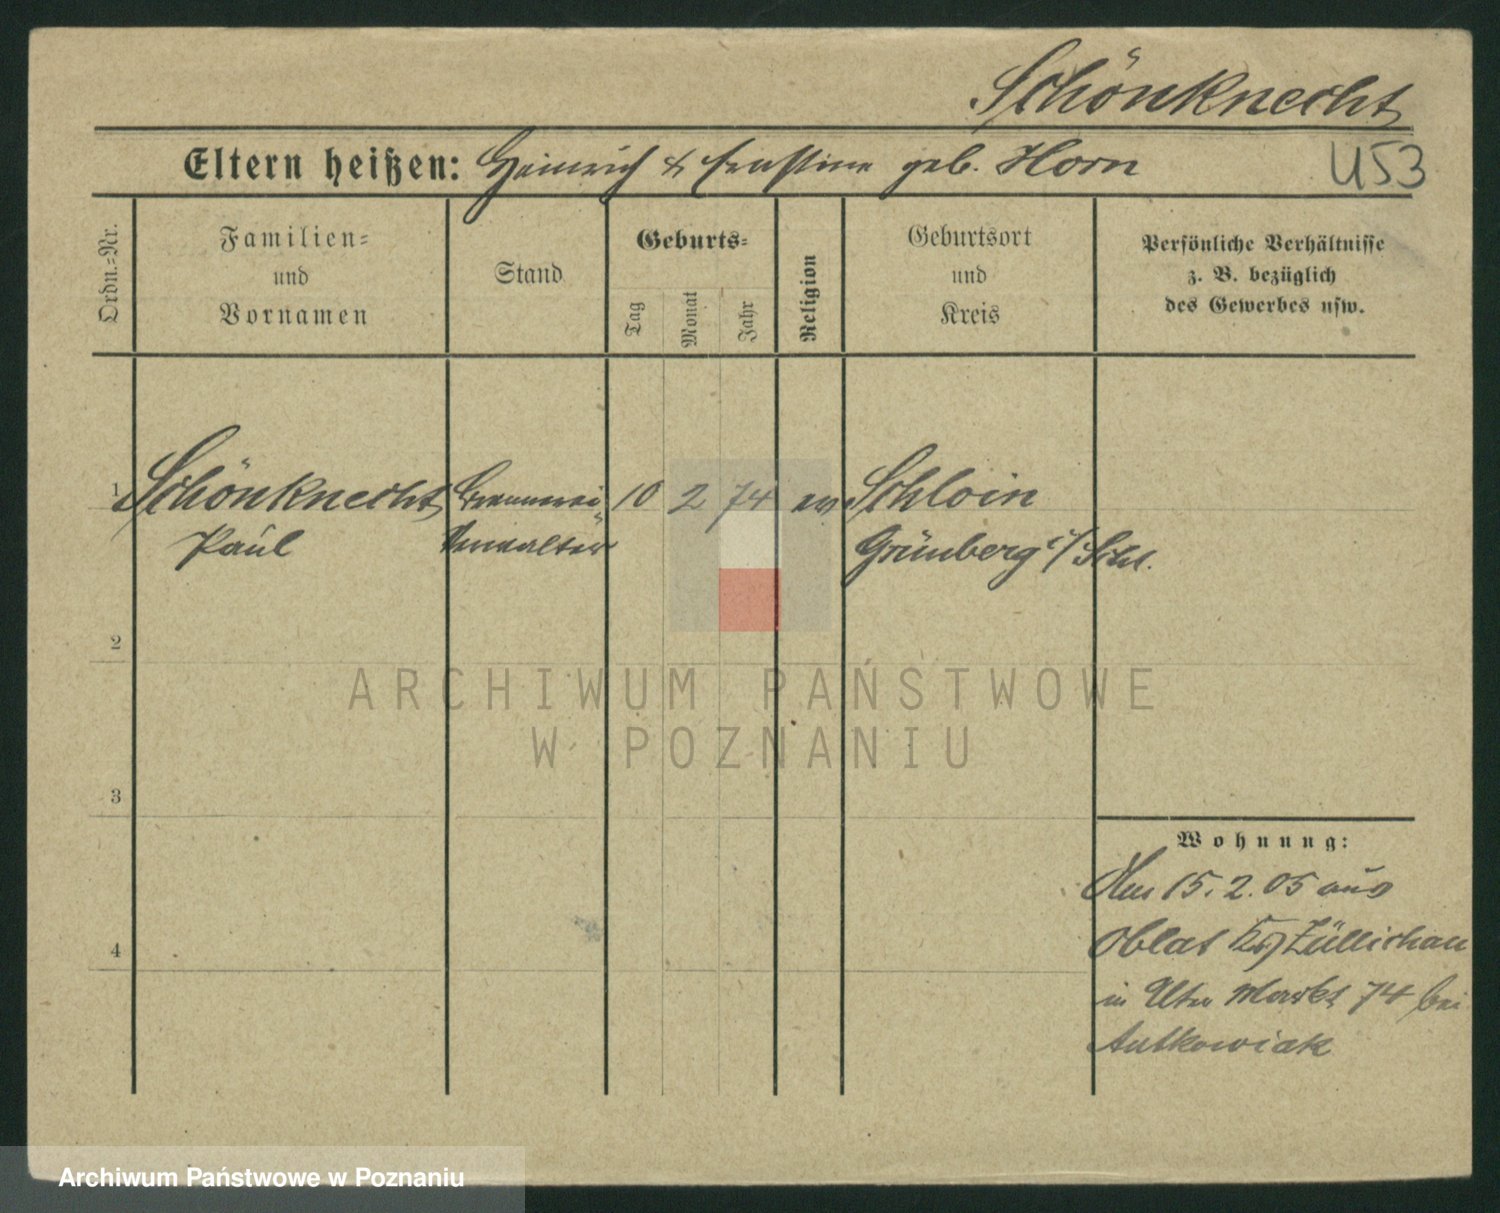 Schönknecht
Eltern heißen: Heinrich & Ernstine geb. Horn
U53
Ordn.-Nr.
Familien-
und
Vornamen
Stand
Geburts-
Tag
Monat
Jahr
Religion
Geburtsort
und
Kreis
Persönliche Verhältnisse
z. B. bezüglich
des Gewerbes usw.
1 Schönknecht Brennerei 10 2 74 ev Schloin
Paul Verwalter Grünberg i/Schl.
2
3
4
Wohnung:
15. 2. 05 aus
Oblat Züllichau
in Alter Markt 74 bei
Antkowiak
ARCHIWUM PAŃSTWOWE
W POZNANIU
Archiwum Państwowe w Poznaniu